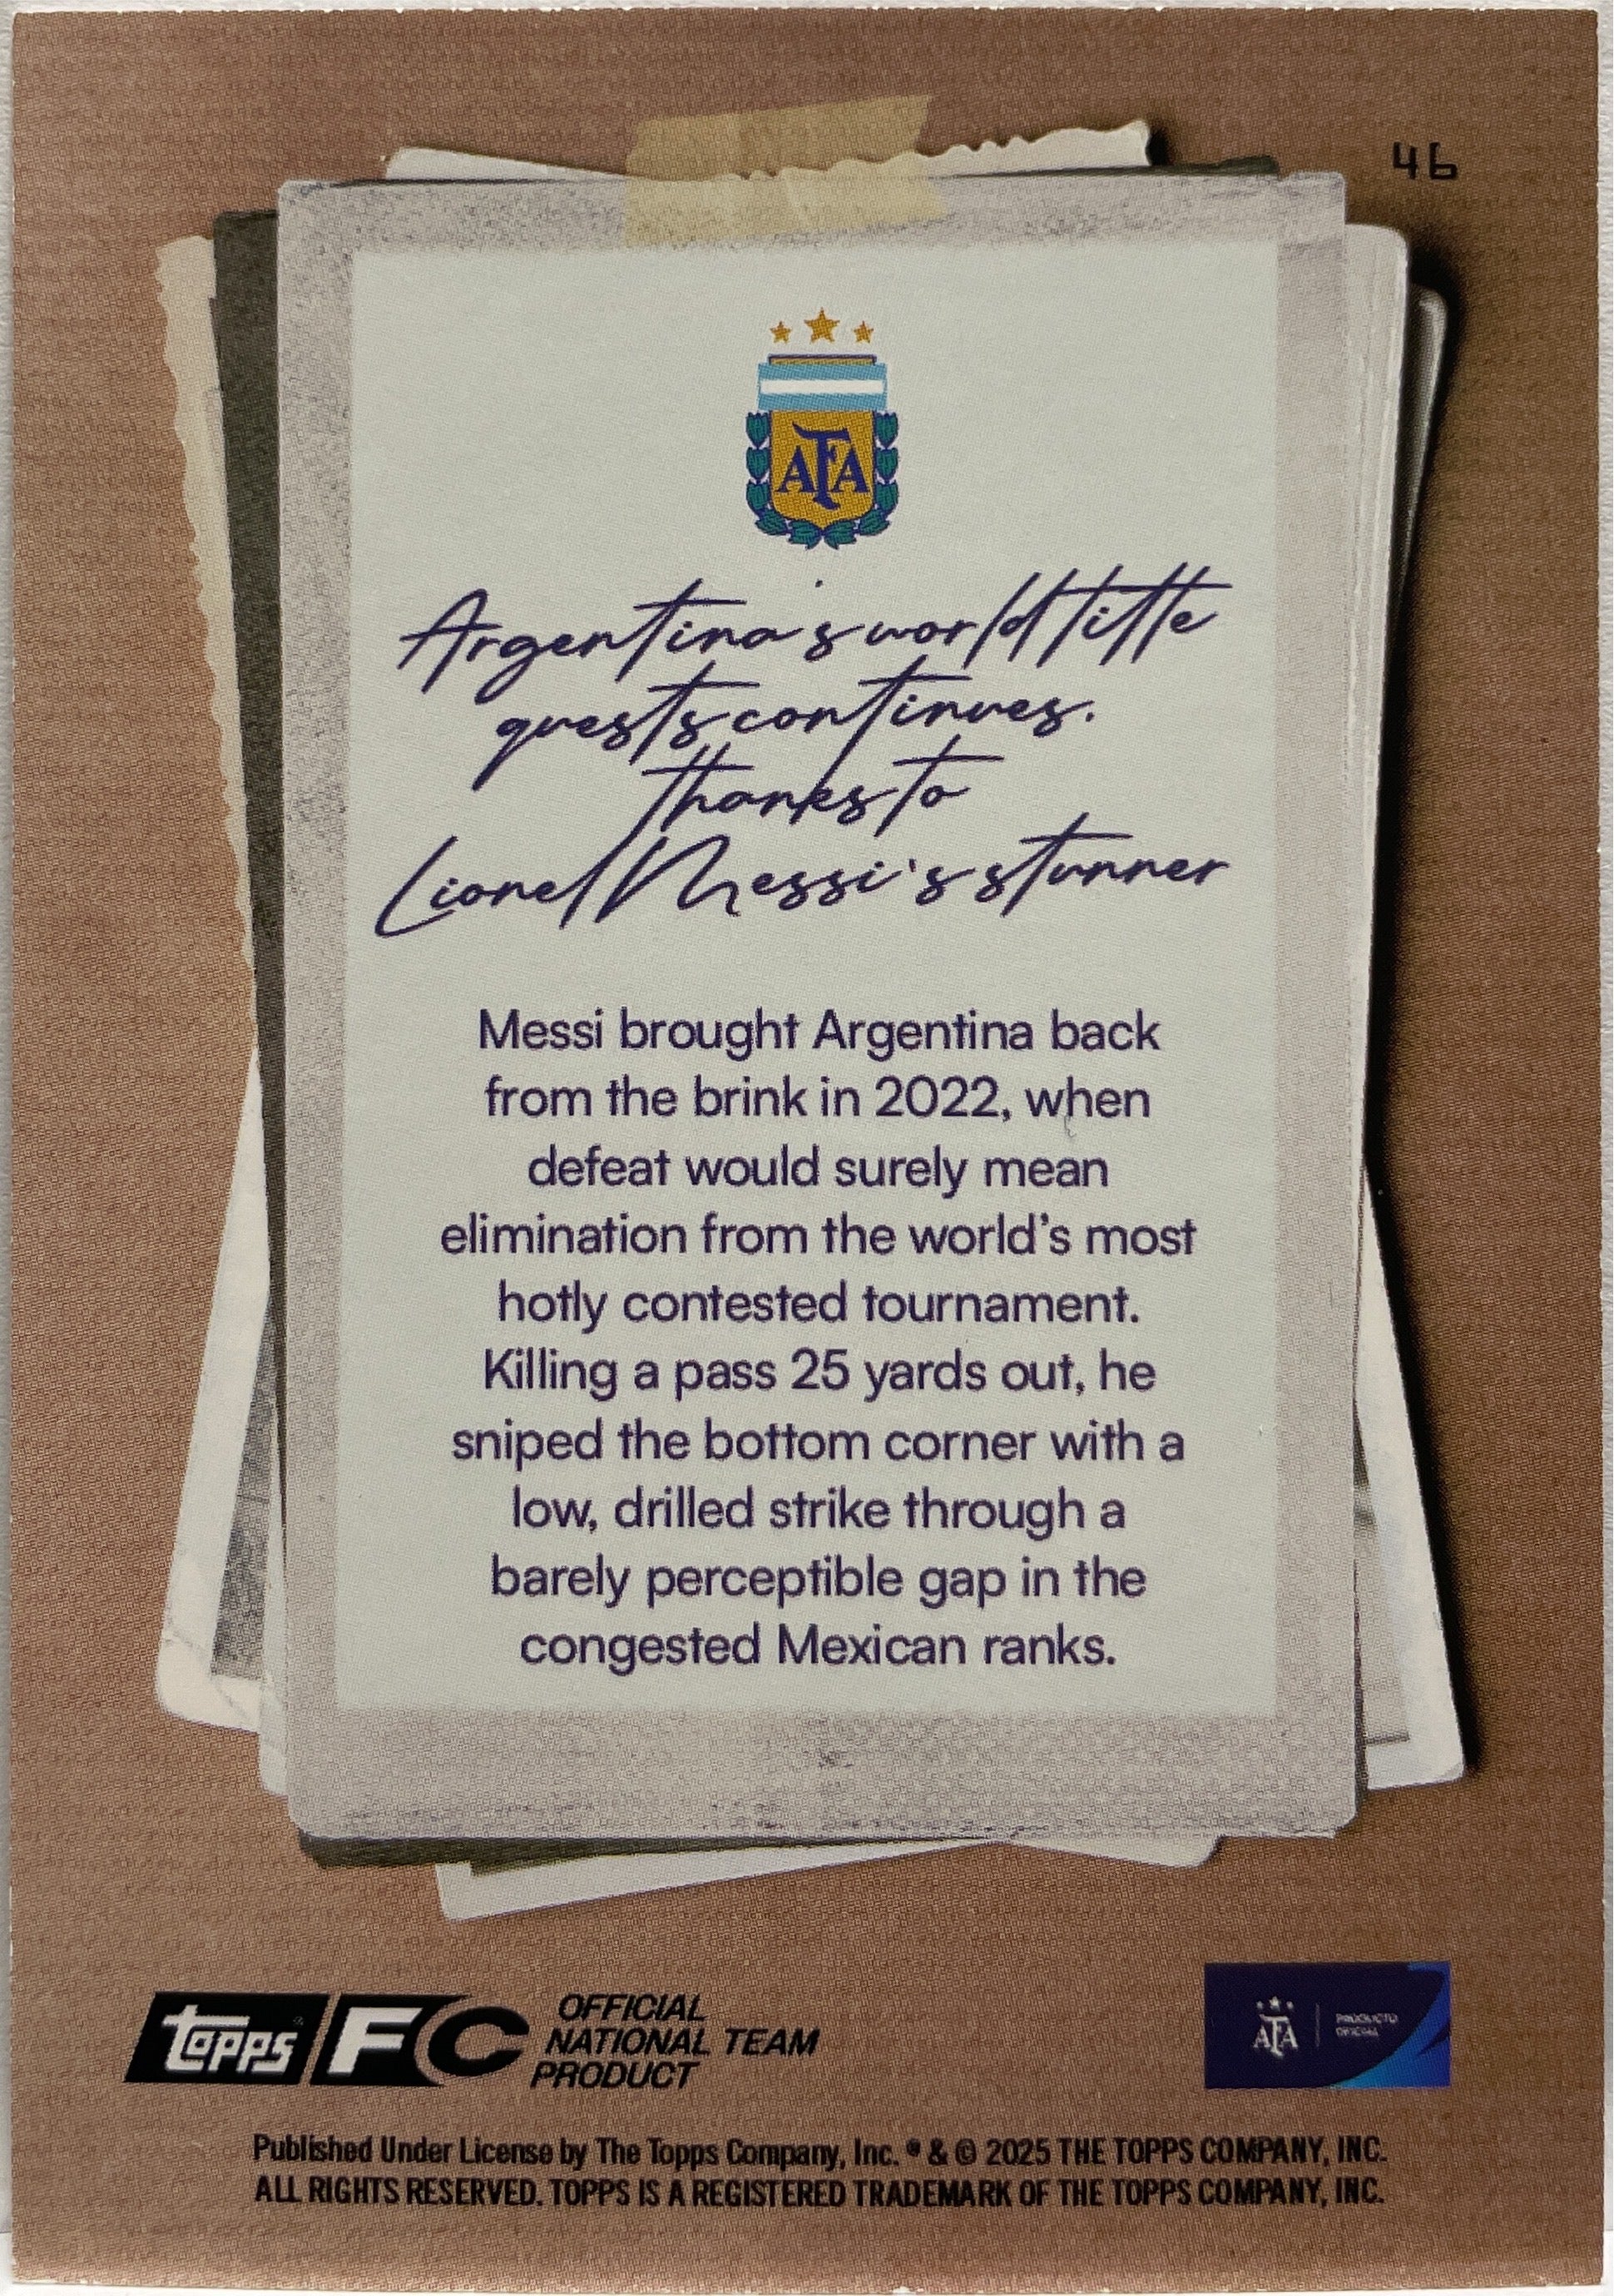 46
AFA
Argentina's world title
quests continues.
thanks to
Lionel Messi's stunner
Messi brought Argentina back
from the brink in 2022, when
defeat would surely mean
elimination from the world's most
hotly contested tournament.
Killing a pass 25 yards out, he
sniped the bottom corner with a
low, drilled strike through a
barely perceptible gap in the
congested Mexican ranks.
topps FC
OFFICIAL
NATIONAL TEAM
PRODUCT
AFA
PRODUCTO
OFICIAL
Published Under License by The Topps Company, Inc. ® & © 2025 THE TOPPS COMPANY, INC.
ALL RIGHTS RESERVED. TOPPS IS A REGISTERED TRADEMARK OF THE TOPPS COMPANY, INC.